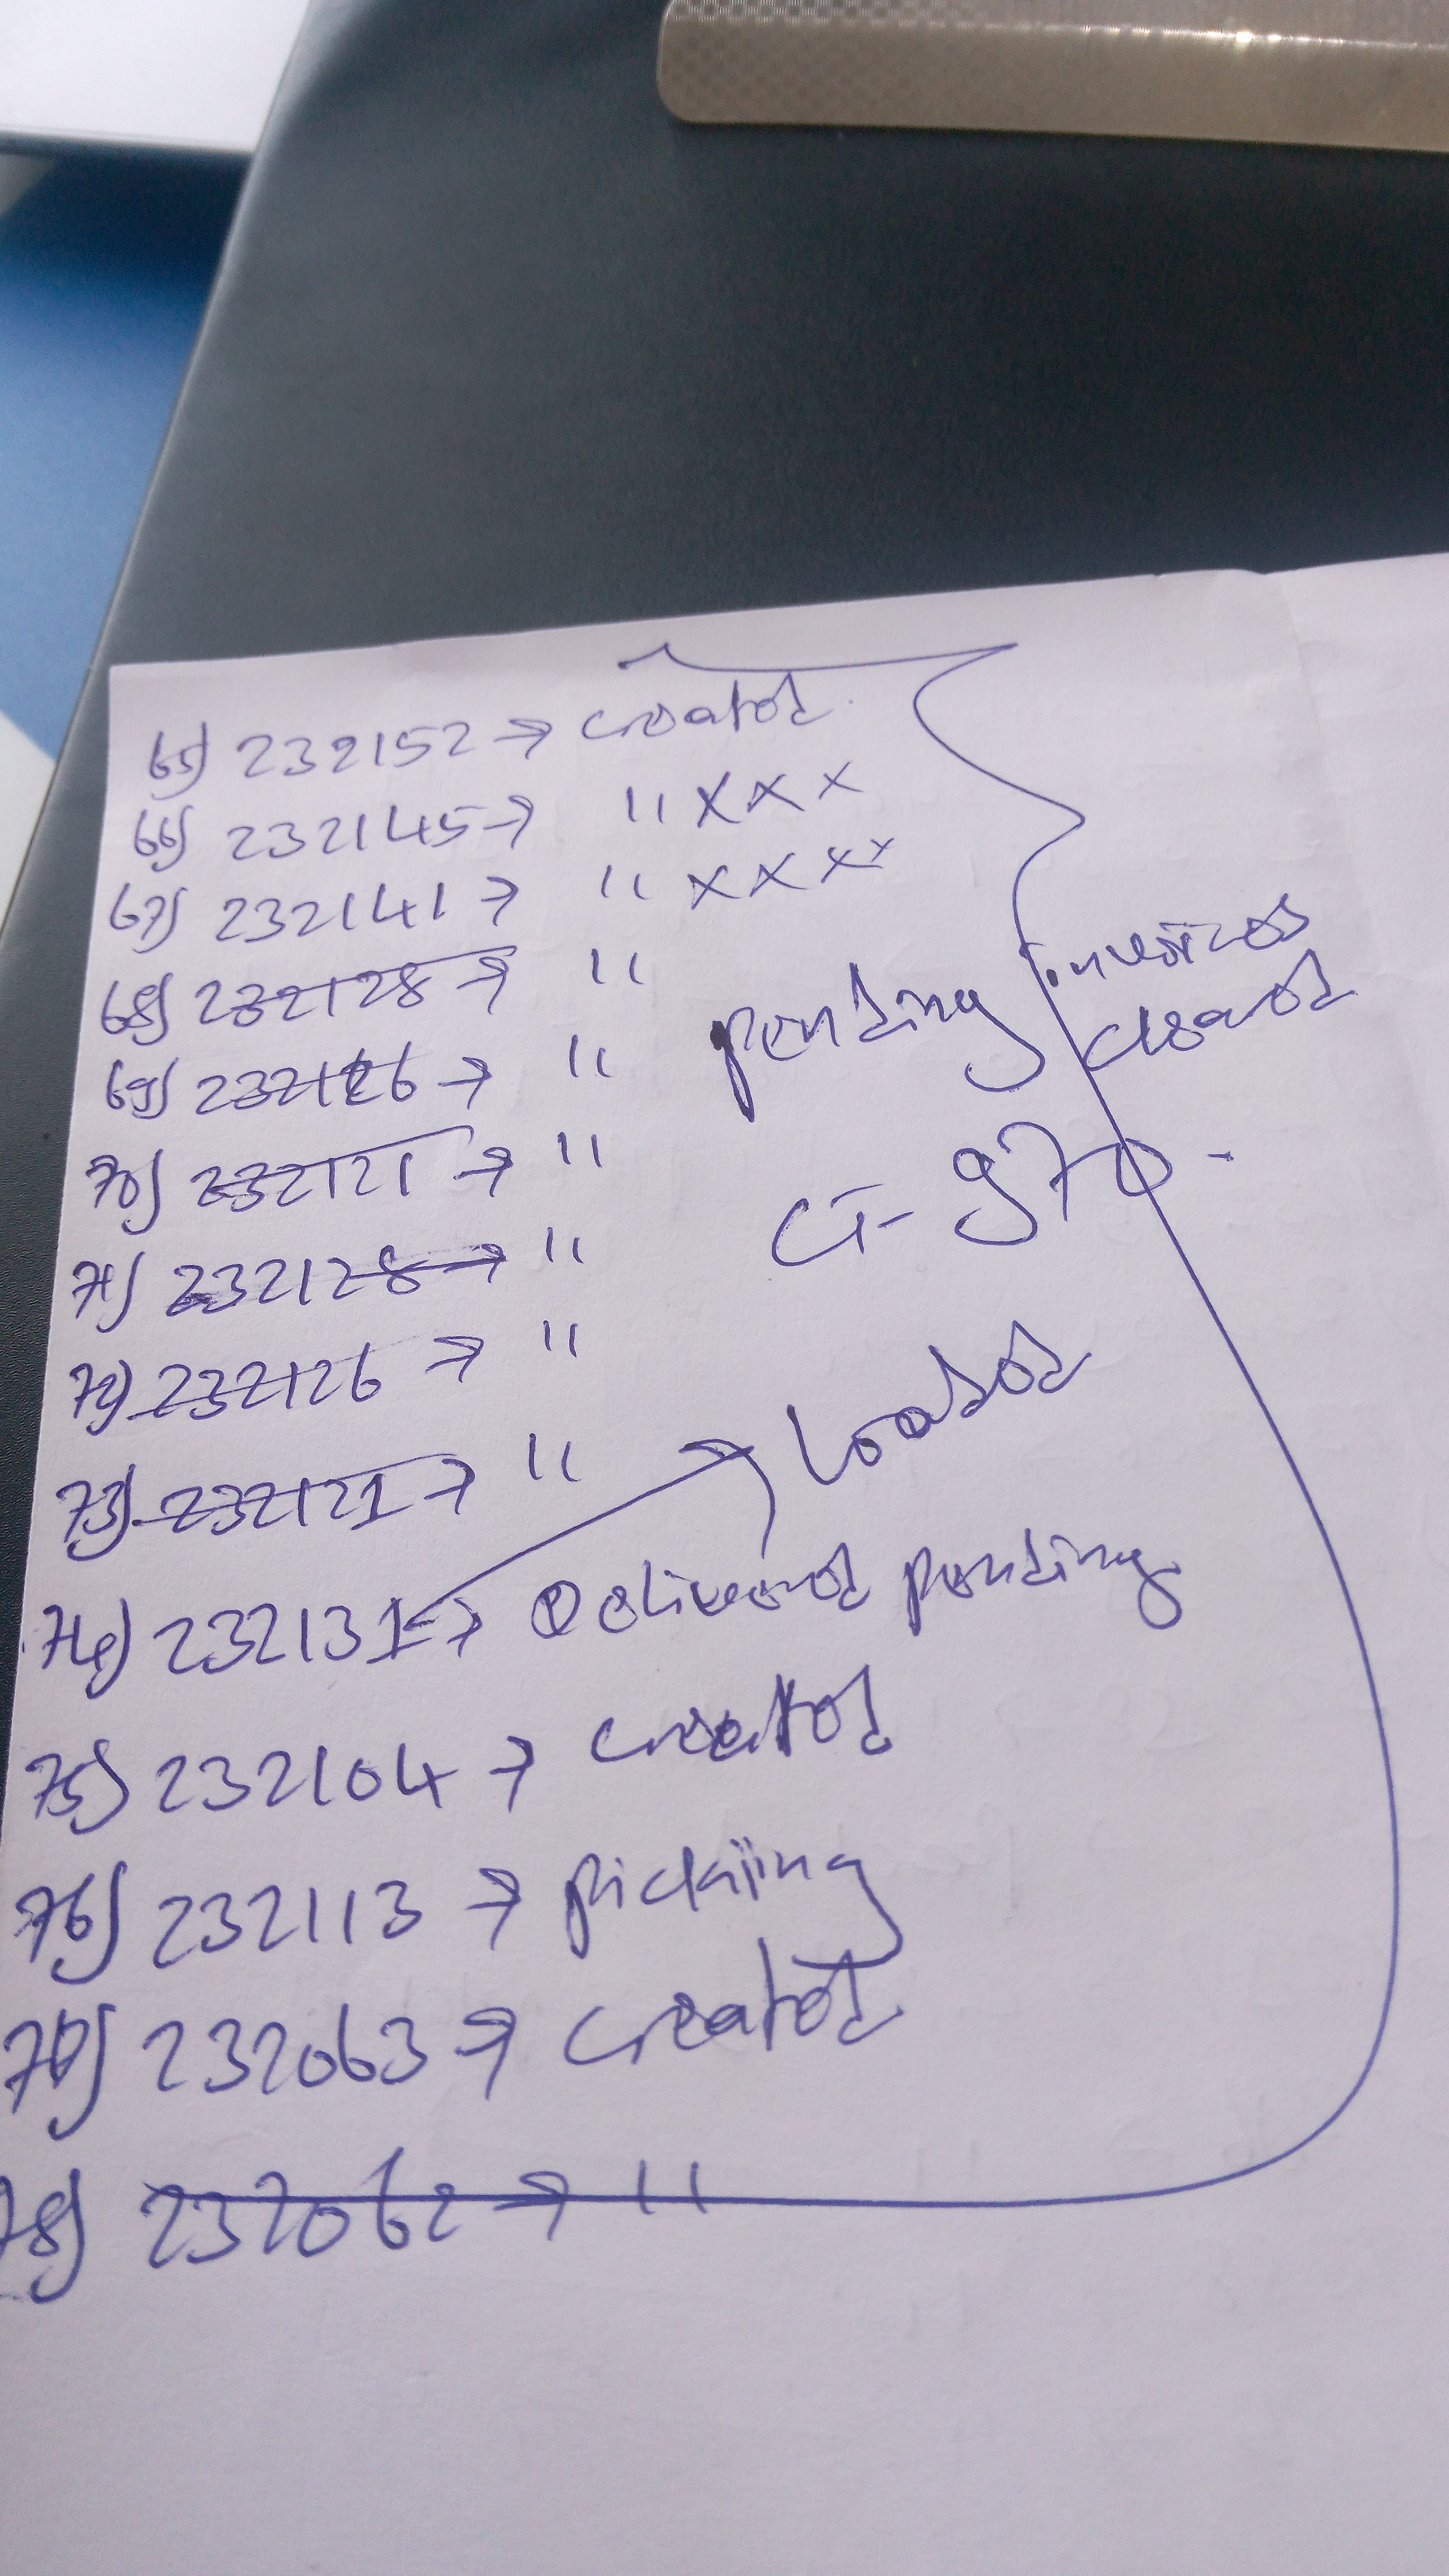 65) 232152 → created
66) 232145 → " X X X
67) 232141 → " X X X X
68) 232128 → "
69) 232126 → "
pending invoices
cleared
70) 232121 → "
CT-970-
71) 232128 → "
72) 232126 → "
73) 232121 → "
Loaded
74) 232131 → Delivered pending
75) 232104 → created
76) 232113 → picking
77) 232063 → created
78) 232062 → "